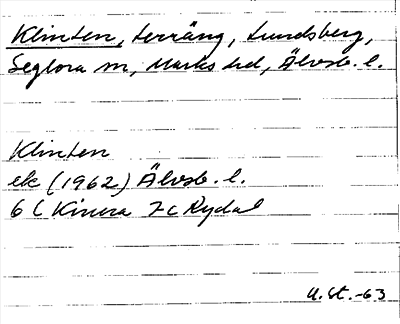 Klinten, terräng, Lundsberg,
Seglora sn, Marks hd, Älvsb. l.
Klinten
ek (1962) Älvsb. l.
6 C Kinna 7c Rydal
U. St. -63